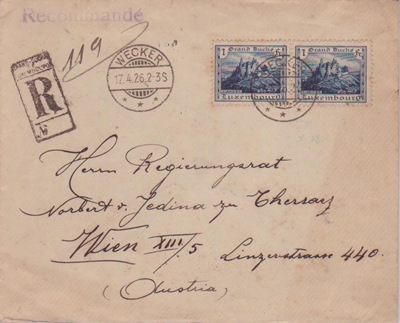 Recommandé
119
R
WECKER
17.4.26.2-3S
Grand Duché
1 Fr
Luxembourg
Grand Duché
1 Fr
Luxembourg
Herrn Regierungsrat
Norbert v. Jedina zu Thersay
Wien XIII/5 Linzerstrasse 440.
(Austria)